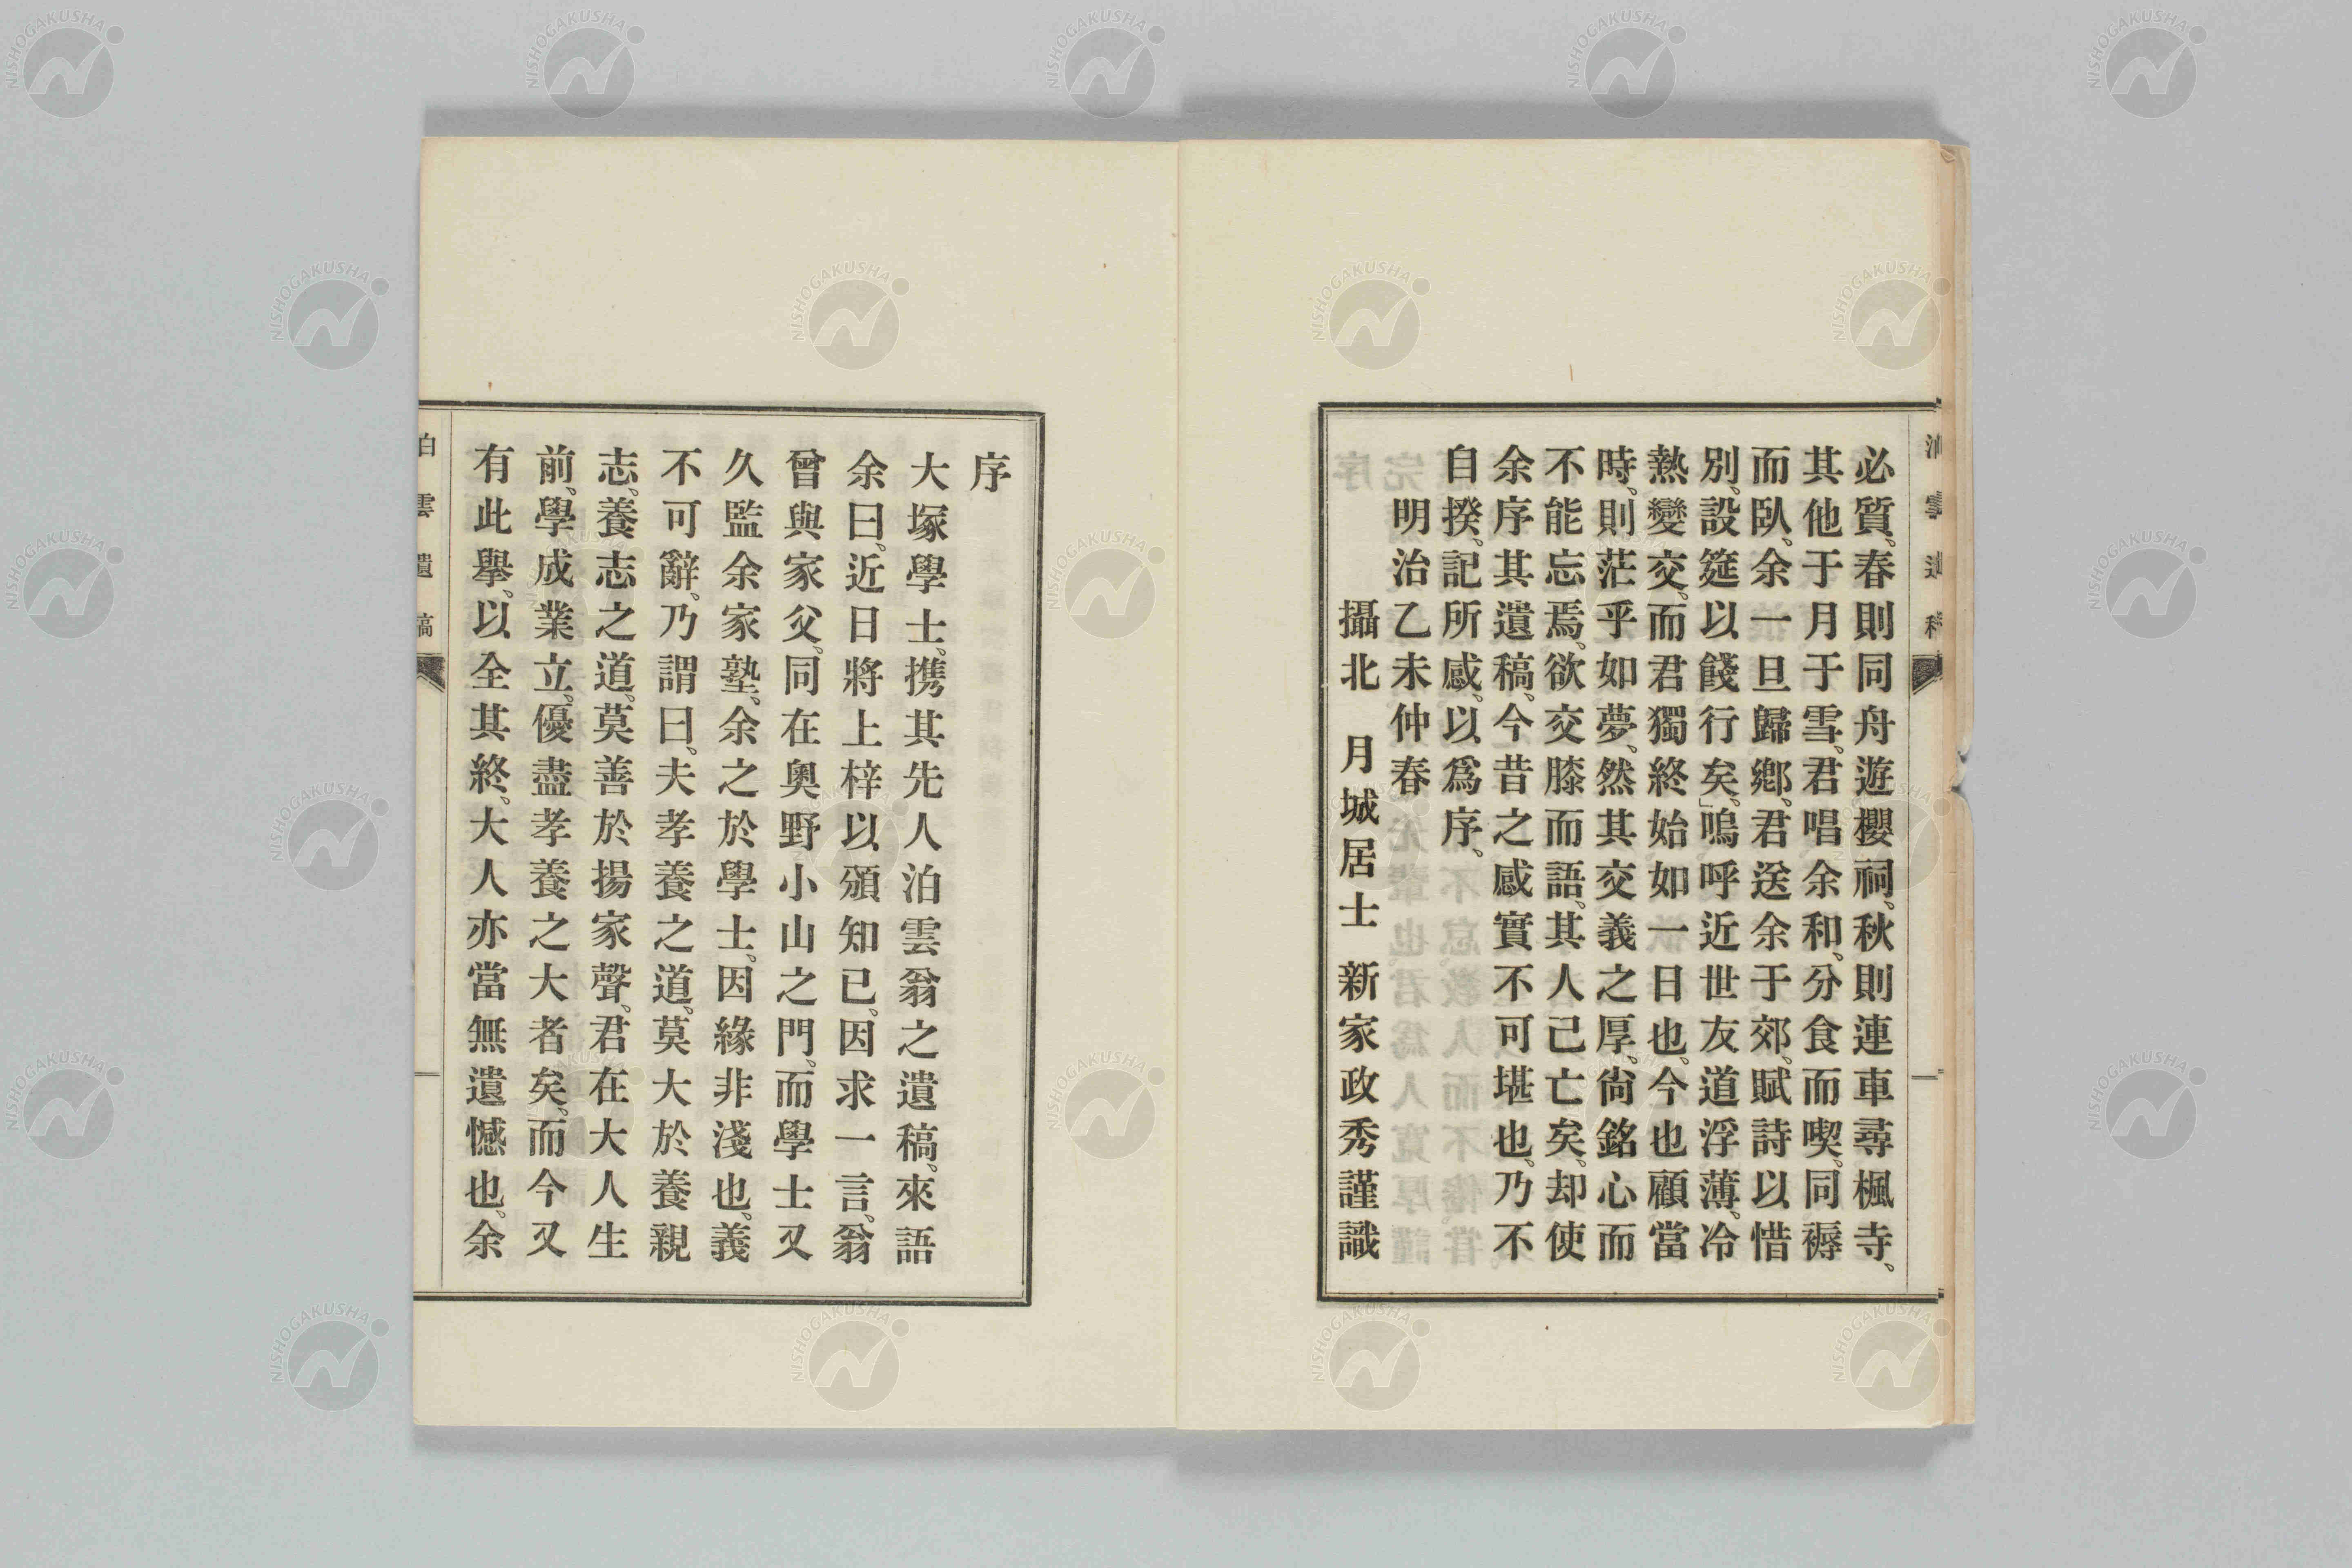 必質。春則同舟遊櫻祠。秋則連車尋楓寺。
其他于月于雪。君唱余和。分食而喫。同褥
而臥。余一旦歸鄕。君送余于郊。賦詩以惜
別。設筵以餞行矣。」嗚呼近世友道浮薄。冷
熱變交。而君獨終始如一日也。今也顧當
時。則茫乎如夢。然其交義之厚。尙銘心而
不能忘焉。欲交膝而語。其人已亡矣。却使
余序其遺稿。今昔之感實不可堪也。乃不
自揆。記所感。以爲序。
明治乙未仲春
攝北 月城居士 新家政秀謹識
序
大塚學士。携其先人泊雲翁之遺稿。來語
余曰。近日將上梓以頒知已。因求一言。翁
曾與家父。同在奧野小山之門。而學士又
久監余家塾。余之於學士。因緣非淺也。義
不可辭。乃謂曰。夫孝養之道。莫大於養親
志。養志之道。莫善於揚家聲。君在大人生
前。學成業立。優盡孝養之大者矣。而今又
有此擧。以全其終。大人亦當無遺憾也。余
泊雲遺稿
一
NISHOGAKUSHA